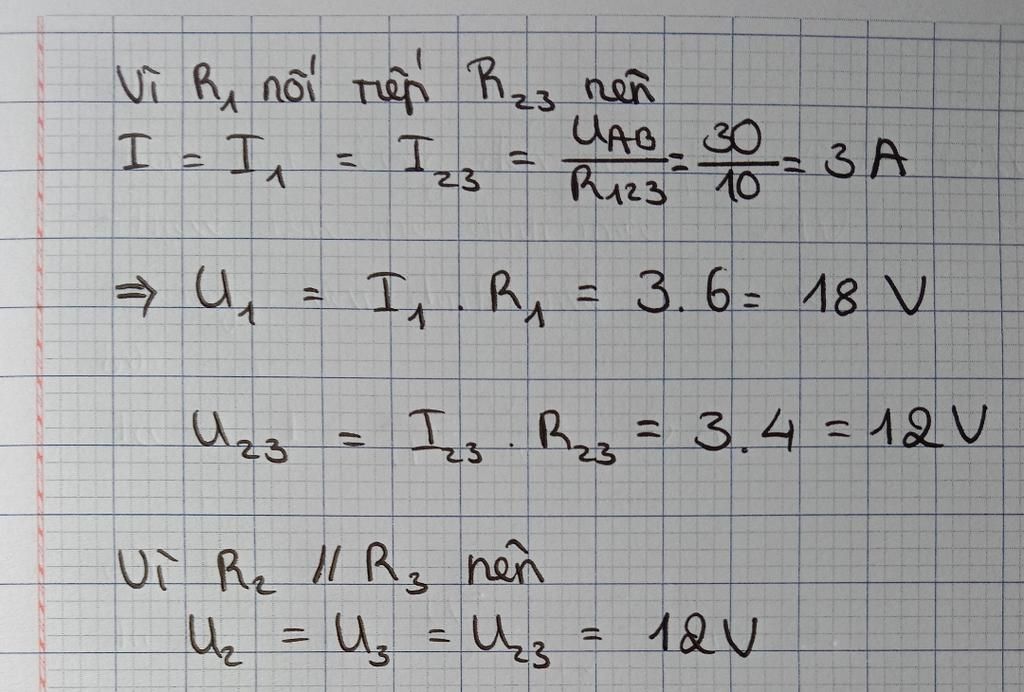 Vì R₁ nối tiếp R₂₃ nên
I = I₁ = I₂₃ = U_AB/R₁₂₃ = 30/10 = 3 A
⇒ U₁ = I₁ . R₁ = 3.6 = 18 V
U₂₃ = I₂₃ . R₂₃ = 3.4 = 12 V
Vì R₂ // R₃ nên
U₂ = U₃ = U₂₃ = 12 V